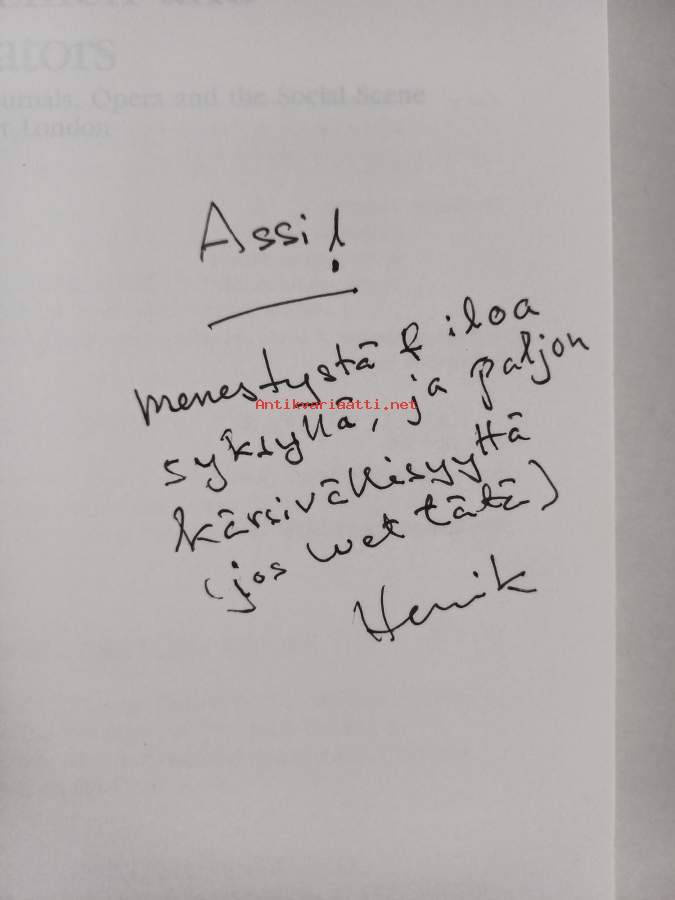 ators
urnals, Opera and the Social Scene
London
Assi!
menestystä & iloa
Antikvariaatti.net
syksyllä, ja paljon
kärsivällisyyttä
(jos luet tätä)
Henrik